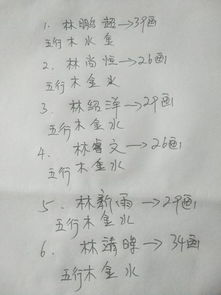 1. 林鹏超→39画
五行木水金
2. 林尚恒→26画
五行木金水
3. 林绍洋→29画
五行木金水
4. 林睿文→26画
五行木金水
5. 林新雨→29画
五行木金水
6. 林清晖→34画
五行木金水